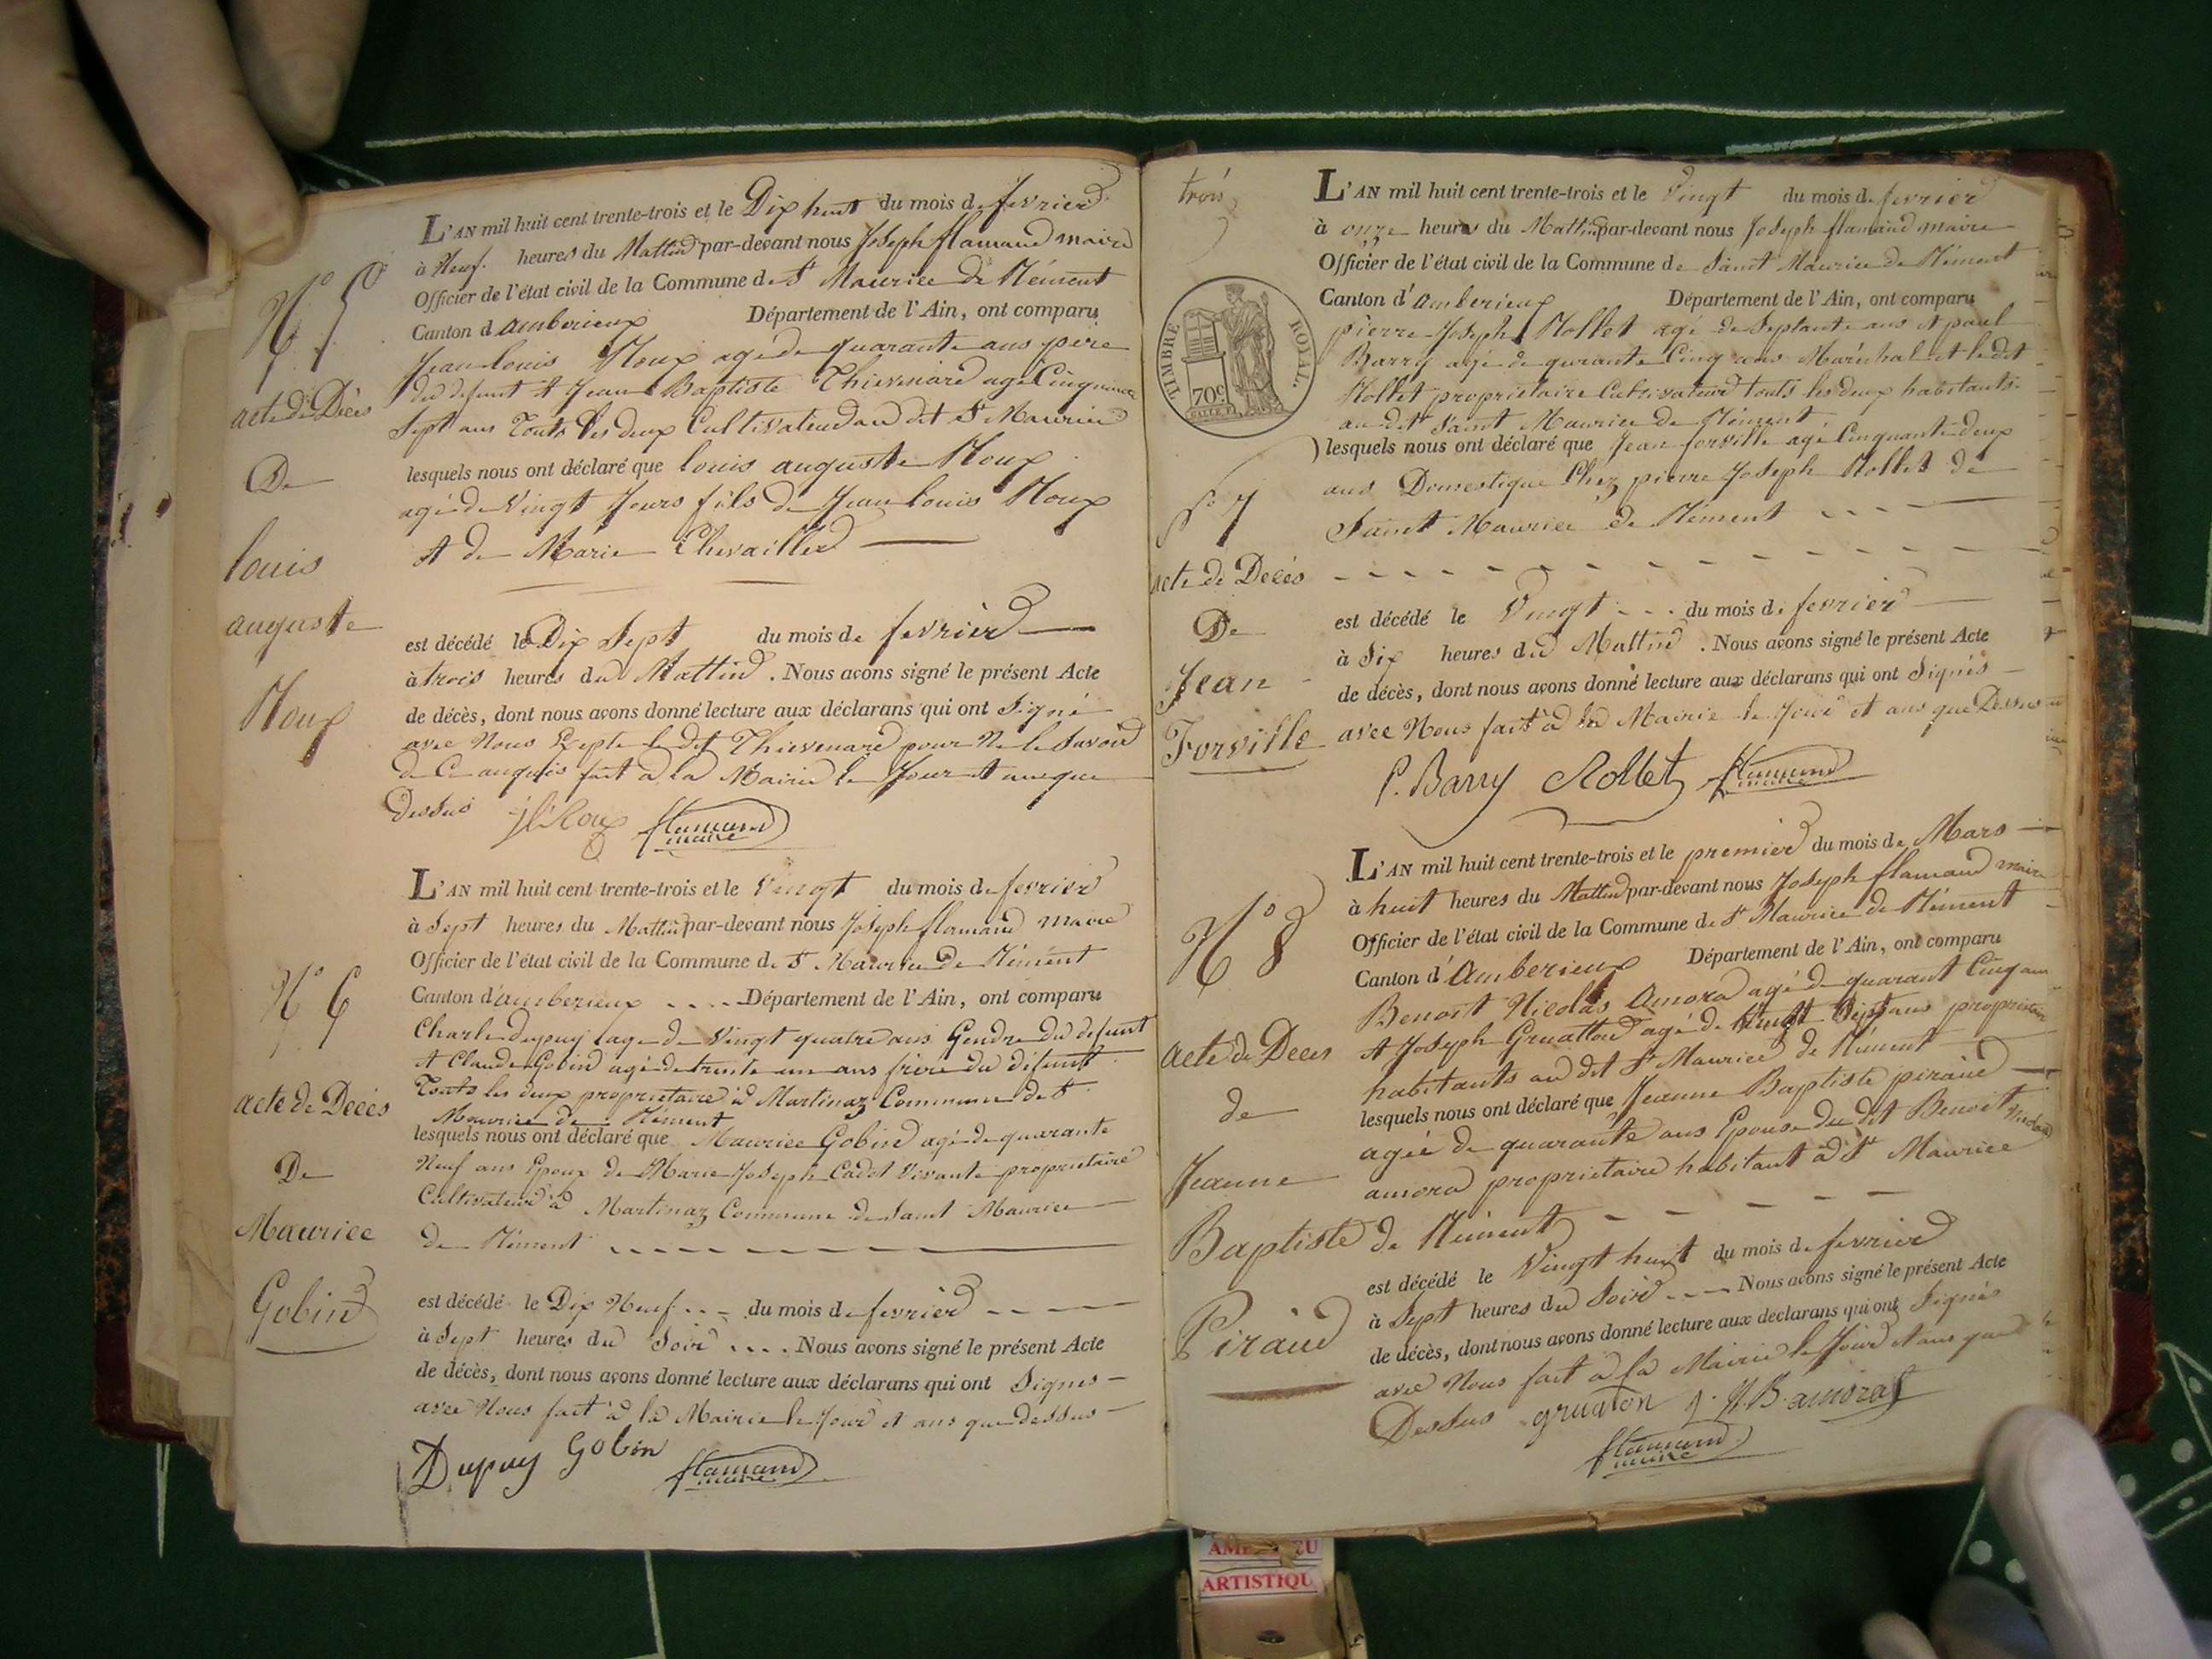 N° 5
acte de Décès
De
louis
auguste
Roux
L'AN mil huit cent trente-trois et le Dix huit du mois de fevrier
à Neuf heures du Mattin par-devant nous Joseph flamand maire
Officier de l'état civil de la Commune de St Maurice de Rément
Canton d amberieux Département de l'Ain, ont comparu
Jean louis Roux agé de quarante ans père
du defunt et Jean Baptiste Thievenard agé Cinquante
Sept ans Touts les deux Cultivateur au dit St Maurice
lesquels nous ont déclaré que louis auguste Roux
agé de Vingt Jours fils de Jean louis Roux
et de Marie Chevaillier
est décédé le Dix Sept du mois de fevrier
à trois heures du Mattin. Nous avons signé le présent Acte
de décès, dont nous avons donné lecture aux déclarans qui ont Signé
avec Nous Exepte le dit Thievenard pour Ne le Savoir
de Ce anquis fait à la Mairie le Jour et an que
Dessus JL Roux flamand maire
N° 6
acte de Décès
De
Maurice
Gobin
L'AN mil huit cent trente-trois et le Vingt du mois de fevrier
à Sept heures du Mattin par-devant nous Joseph flamand maire
Officier de l'état civil de la Commune de St Maurice de Rément
Canton d'amberieux Département de l'Ain, ont comparu
Charle dupuy agé de Vingt quatre ans Gendre du defunt
et Claude Gobin agé de trente un ans frère du défunt
Touts les deux propriétaire à Martinaz Commune de St
Maurice de Rément
lesquels nous ont déclaré que Maurice Gobin agé de quarante
Neuf ans Epoux de Marie Joseph Cadot Vivante propriétaire
Cultivateur à Martinaz Commune de Saint Maurice
de Rément
est décédé le Dix Neuf du mois de fevrier
à Sept heures du Soir Nous avons signé le présent Acte
de décès, dont nous avons donné lecture aux déclarans qui ont Signes
avec Nous fait à la Mairie le Jour et ans que dessus
Dupuy Gobin flamand maire
trois
TIMBRE ROYAL.
70c
N° 7
acte de Décès
De
Jean
Forville
L'AN mil huit cent trente-trois et le Vingt du mois de fevrier
à onze heures du Mattin par-devant nous Joseph flamand maire
Officier de l'état civil de la Commune de Saint Maurice de Rément
Canton d'amberieux Département de l'Ain, ont comparu
pierre Joseph Rollet agé de Septante ans et paul
Barry agé de quarante Cinq ans Maréchal et le dit
Rollet propriétaire Cultivateur touts les deux habitants
au dit Saint Maurice de Rément
lesquels nous ont déclaré que Jean forville agé Cinquante deux
ans Domestique Chez pierre Joseph Rollet de
Saint Maurice de Rément
est décédé le Vingt du mois de fevrier
à Six heures du Mattin. Nous avons signé le présent Acte
de décès, dont nous avons donné lecture aux déclarans qui ont Signés
avec Nous fait à la Mairie le Jour et ans que Dessus
P. Barry Rollet flamand maire
N° 8
acte de Deces
de
Jeanne
Baptiste
Piraud
L'AN mil huit cent trente-trois et le premier du mois de Mars
à huit heures du Mattin par-devant nous Joseph flamand maire
Officier de l'état civil de la Commune de St Maurice de Rément
Canton d'Amberieux Département de l'Ain, ont comparu
Benoit Nicolas Amora agé de quarant Cinq ans
et Joseph Gruatton agé de Vingt Sept ans propriétaire
habitants au dit St Maurice de Rément
lesquels nous ont déclaré que Jeanne Baptiste piraud
agée de quarante ans Epouse du dit Benoit Nicolas
amora propriétaire habitant à St Maurice
de Rément
est décédé le Vingt huit du mois de fevrier
à Sept heures du Soir Nous avons signé le présent Acte
de décès, dont nous avons donné lecture aux déclarans qui ont Signés
avec Nous fait à la Mairie le Jour et ans que
Dessus gruaton J. N. B. amora
flamand maire
ARTISTIQU